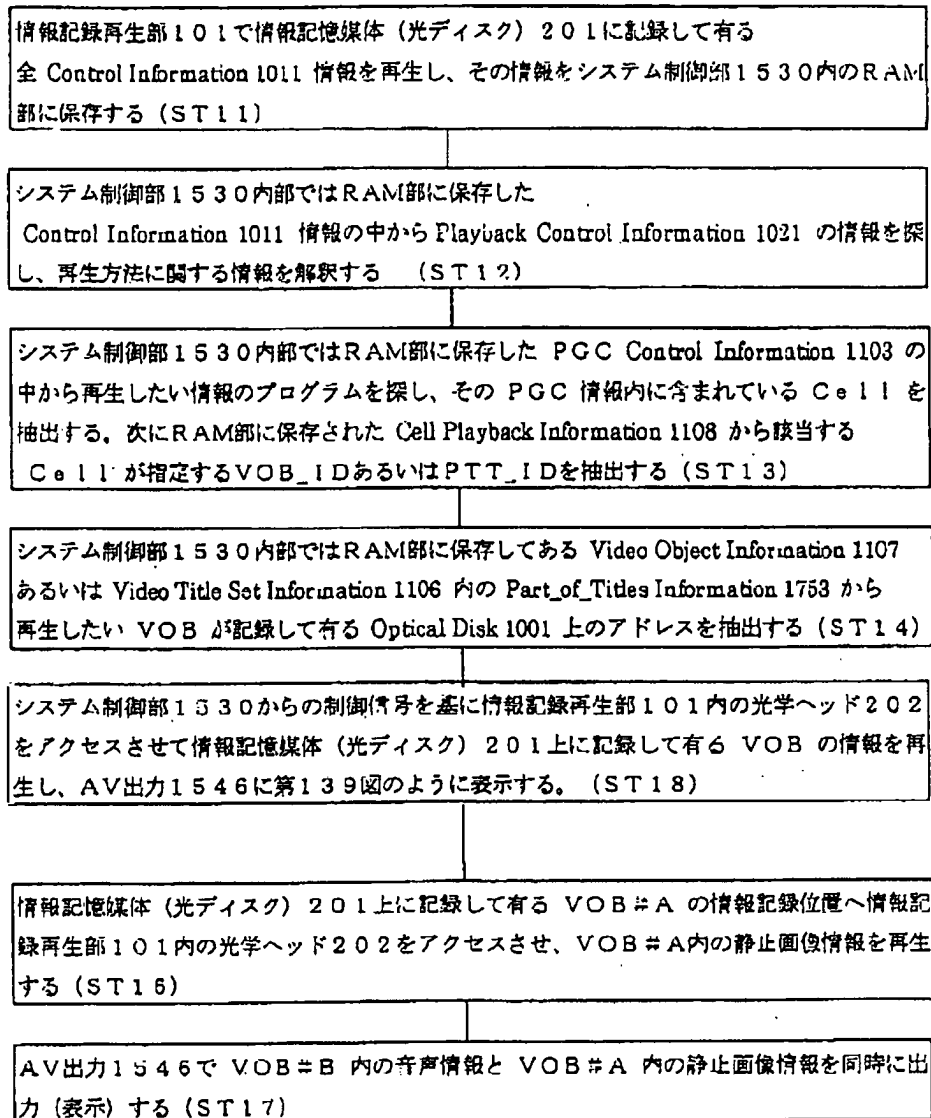 情報記録再生部101で情報記憶媒体（光ディスク）201に記録して有る
全 Control Information 1011 情報を再生し、その情報をシステム制御部1530内のRAM
部に保存する（ST11）
システム制御部1530内部ではRAM部に保存した
Control Information 1011 情報の中から Playback Control Information 1021 の情報を探
し、再生方法に関する情報を解釈する （ST12）
システム制御部1530内部ではRAM部に保存した PGC Control Information 1103 の
中から再生したい情報のプログラムを探し、その PGC 情報内に含まれている Cell を
抽出する。次にRAM部に保存された Cell Playback Information 1108 から該当する
Cell が指定するVOB_IDあるいはPTT_IDを抽出する（ST13）
システム制御部1530内部ではRAM部に保存してある Video Object Information 1107
あるいは Video Title Set Information 1106 内の Part_of_Titles Information 1753 から
再生したい VOB が記録して有る Optical Disk 1001 上のアドレスを抽出する（ST14）
システム制御部1530からの制御信号を基に情報記録再生部101内の光学ヘッド202
をアクセスさせて情報記憶媒体（光ディスク）201上に記録して有る VOB の情報を再
生し、AV出力1546に第139図のように表示する。（ST18）
情報記憶媒体（光ディスク）201上に記録して有る VOB#A の情報記録位置へ情報記
録再生部101内の光学ヘッド202をアクセスさせ、VOB#A内の静止画像情報を再生
する（ST16）
AV出力1546で VOB#B 内の音声情報と VOB#A 内の静止画像情報を同時に出
力（表示）する（ST17）